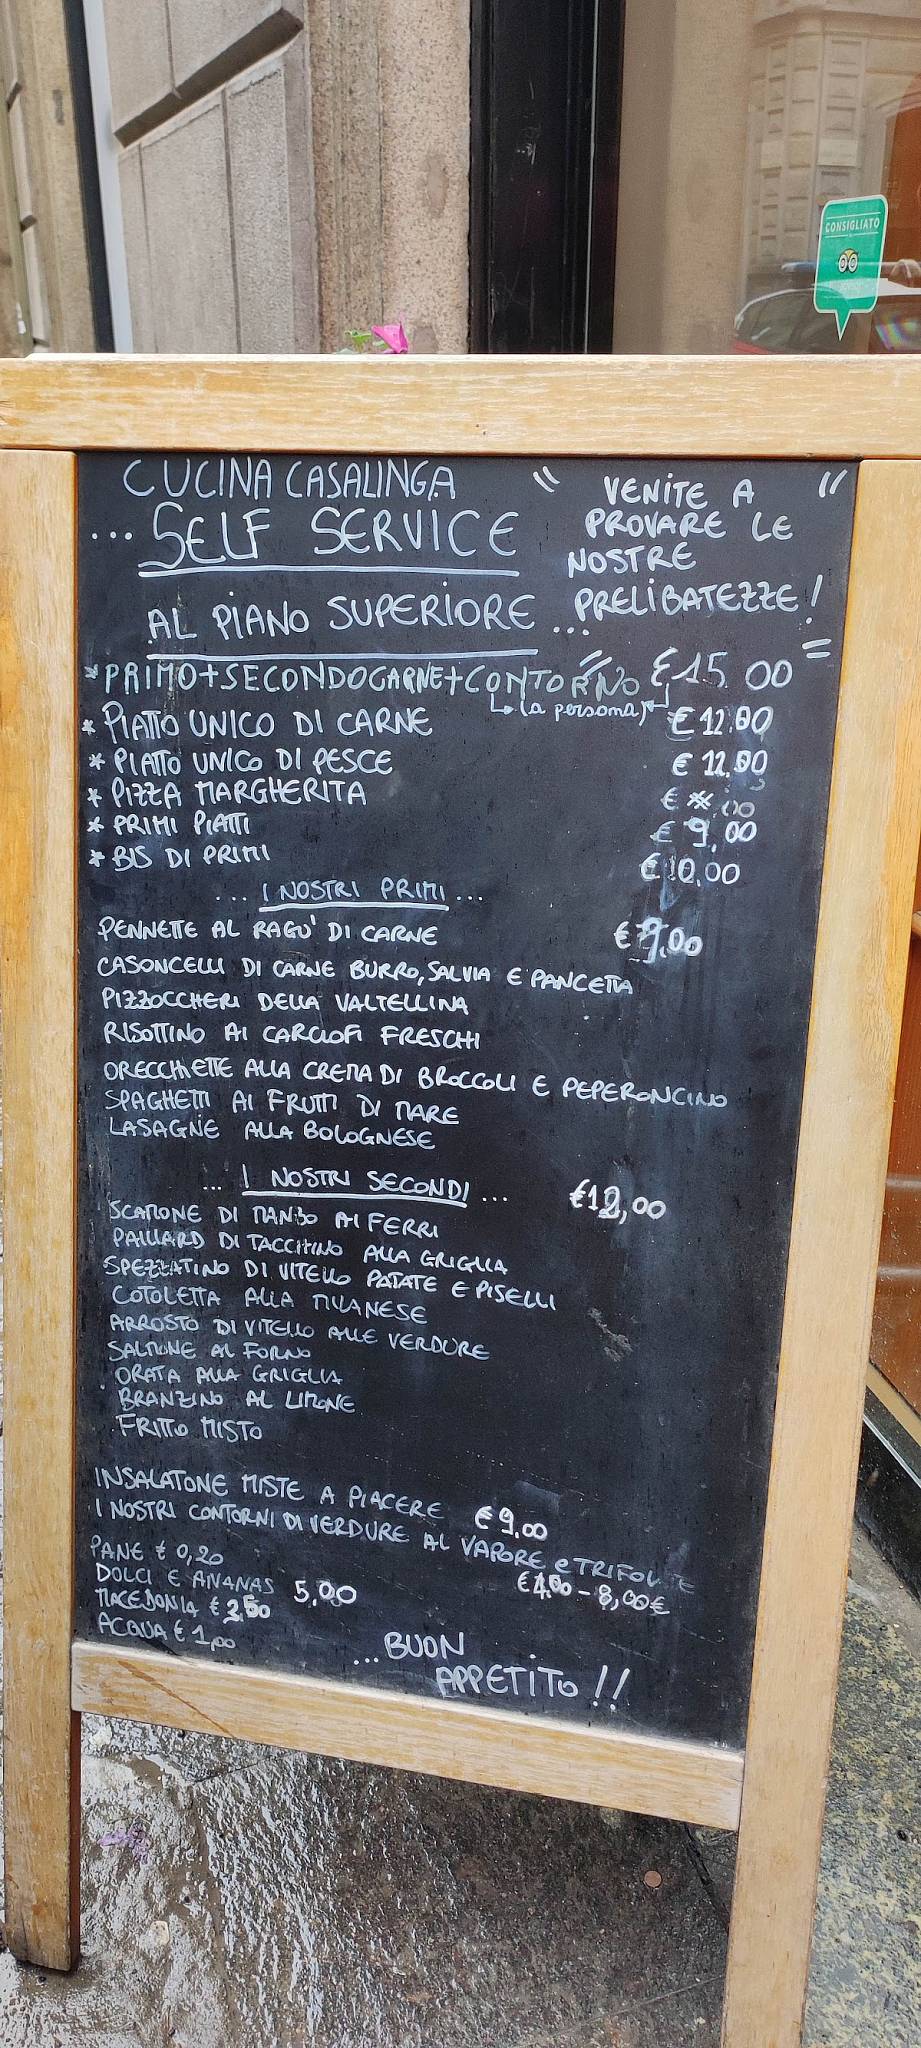 CONSIGLIATO
CUCINA CASALINGA
... SELF SERVICE
AL PIANO SUPERIORE ...
" VENITE A "
PROVARE LE
NOSTRE
PRELIBATEZZE!
* PRIMO+SECONDO CARNE+CONTORNO € 15.00
(a persona)
* PIATTO UNICO DI CARNE € 12.00
* PIATTO UNICO DI PESCE € 12.00
* PIZZA MARGHERITA €
* PRIMI PIATTI € 9,00
* BIS DI PRIMI € 10,00
... I NOSTRI PRIMI ...
PENNETTE AL RAGU' DI CARNE € 9,00
CASONCELLI DI CARNE BURRO, SALVIA E PANCETTA
PIZZOCCHERI DELLA VALTELLINA
RISOTTINO AI CARCIOFI FRESCHI
ORECCHIETTE ALLA CREMA DI BROCCOLI E PEPERONCINO
SPAGHETTI AI FRUTTI DI MARE
LASAGNE ALLA BOLOGNESE
... I NOSTRI SECONDI ... € 12,00
SCAMONE DI MANZO AI FERRI
PAILLARD DI TACCHINO ALLA GRIGLIA
SPEZZATINO DI VITELLO PATATE E PISELLI
COTOLETTA ALLA MILANESE
ARROSTO DI VITELLO ALLE VERDURE
SALMONE AL FORNO
ORATA ALLA GRIGLIA
BRANZINO AL LIMONE
FRITTO MISTO
INSALATONE MISTE A PIACERE € 9,00
I NOSTRI CONTORNI DI VERDURE AL VAPORE e TRIFOLATE
PANE € 0,20
DOLCI E ANANAS 5,00
MACEDONIA € 3,50
ACQUA € 1,00
- 8,00€
... BUON
APPETITO!!